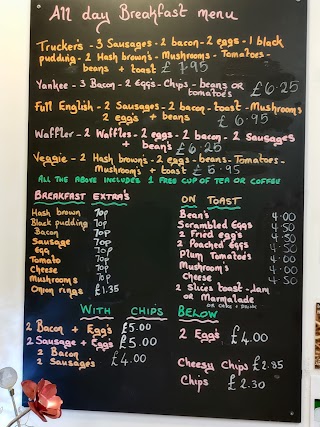 All day Breakfast menu
Trucker's - 3 Sausages - 2 bacon - 2 eggs - 1 black
pudding - 2 Hash brown's - Mushrooms - Tomatoes -
beans + toast £7.95
Yankee - 3 Bacon - 2 Egg's - Chips - beans or
tomatoes £6.25
Full English - 2 Sausages - 2 bacon - toast - Mushrooms
2 egg's + beans £6.95
Waffler - 2 Waffles - 2 eggs - 2 bacon - 2 Sausages
+ bean's £6.25
Veggie - 2 Hash brown's - 2 eggs - beans - Tomatoes -
Mushroom's + toast £5.95
ALL THE ABOVE INCLUDES 1 FREE CUP OF TEA OR COFFEE
BREAKFAST EXTRA'S
Hash brown 70p
Black pudding 70p
Bacon 70p
Sausage 70p
Egg 70p
Tomato 70p
Cheese 70p
Mushrooms 70p
Onion rings £1.35
ON TOAST
Bean's 4.00
Scrambled Eggs 4.50
2 Fried egg's 4.50
2 Poached eggs 4.50
Plum Tomatoes 4.00
Mushroom's 4.00
Cheese 4.50
2 Slices toast - Jam
or Marmalade
WITH CHIPS BELOW
2 Bacon + Egg's £5.00
2 Sausage + Eggs £5.00
2 Bacon
2 Sausage's £4.00
2 Egg's £4.00
Cheesy Chips £2.85
Chips £2.30